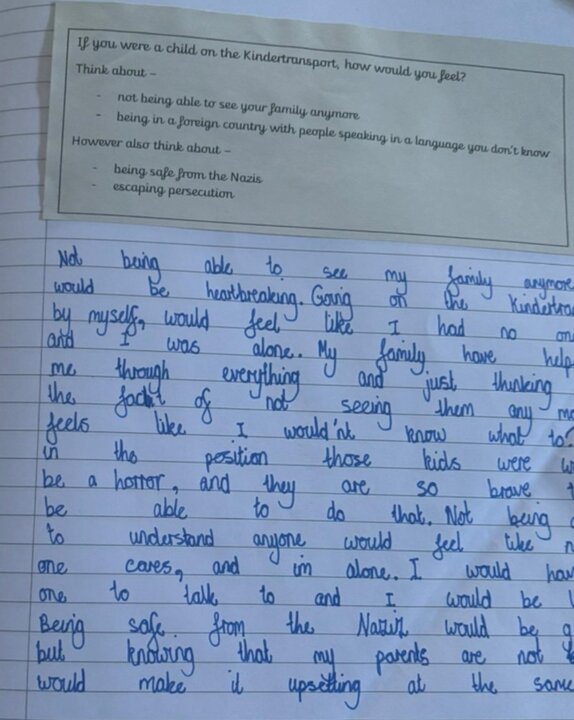 If you were a child on the Kindertransport, how would you feel?
Think about -
- not being able to see your family anymore
- being in a foreign country with people speaking in a language you don't know
However also think about -
- being safe from the Nazis
- escaping persecution
Not being able to see my family anymore
would be heartbreaking. Going on the
by myself, would feel like I had no
and I was alone. My family have help
me through everything and just thinking
the of not seeing them any
feels like I would'nt know what to
in the position those kids were
be a horror, and they are so brave
be able to do that. Not being
to understand anyone would feel like
one cares, and im alone. I would
one to talk to and I would be
Being safe from the would be
but knowing that my parents are not
would make it upsetting at the same